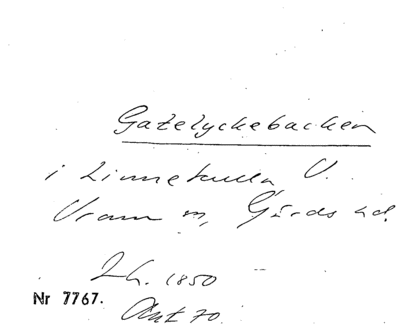 Gatelyckebacken
i Linnekulla, V.
Vram sn, Gärds hd.
1850
Nr 7767.